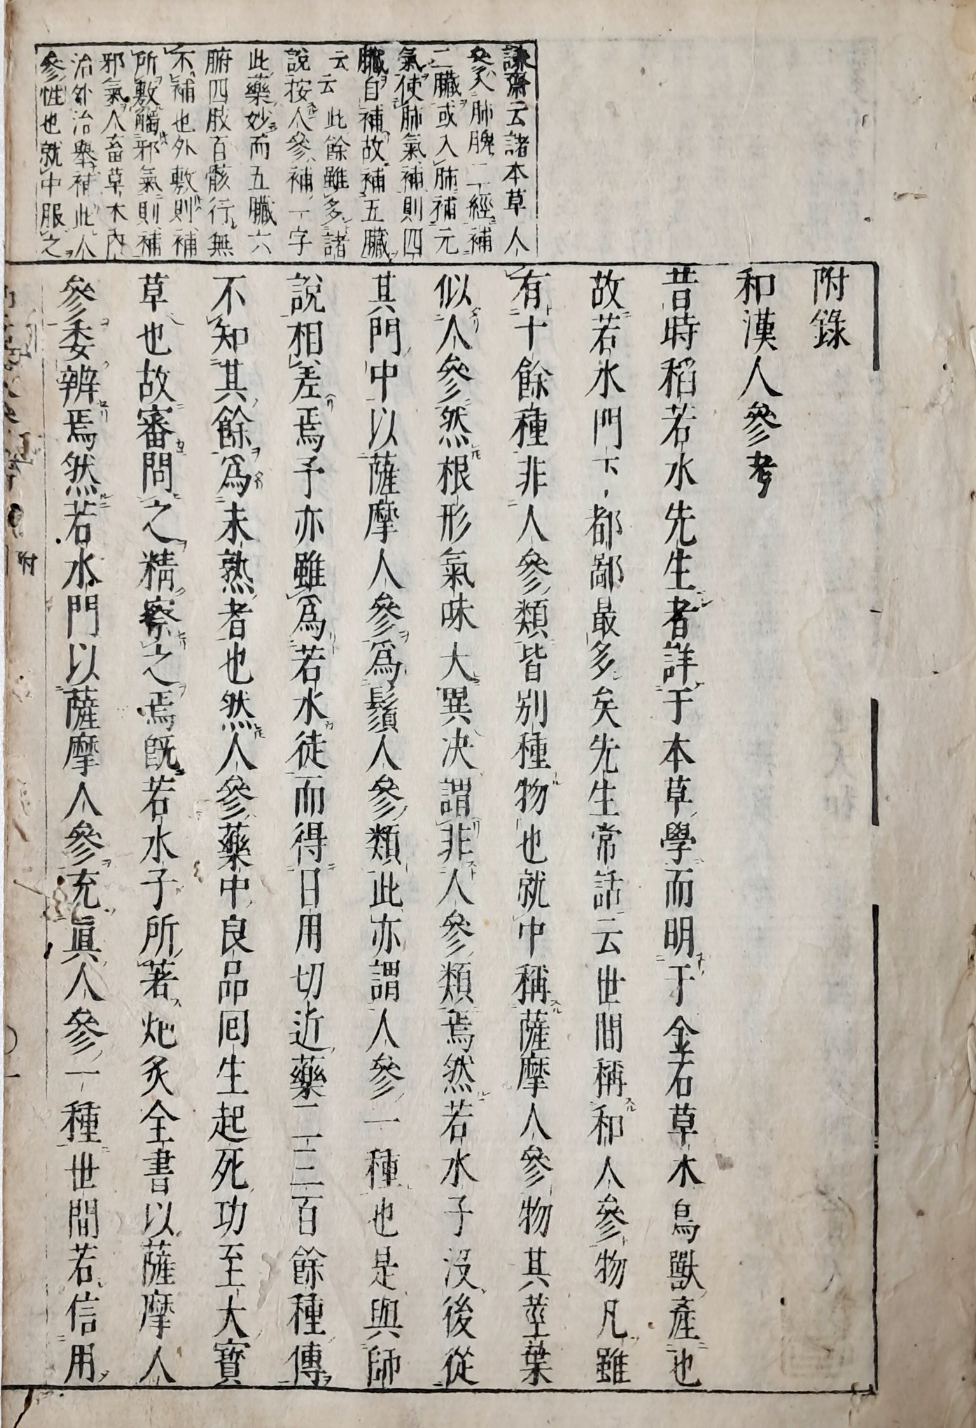 謙齋云諸本草人
參入肺脾二經補
二臟或入肺補元
氣使肺氣補則四
臟自補故補五臟
云云此餘雖多諸
說按人參補一字
此藥妙而五臟六
腑四肢百骸行無
不補也外敷則補
所敷觸邪氣則補
邪氣人畜草木內
治外治舉補此人
參性也就中服之
附錄
和漢人參考
昔時稻若水先生者詳于本草學而明于金石草木鳥獸產也
故若水門下都鄙最多矣先生常話云世間稱和人參物凡雖
有十餘種非人參類皆別種物也就中稱薩摩人參物其莖葉
似人參然根形氣味大異決謂非人參類焉然若水子沒後從
其門中以薩摩人參為鬚人參類此亦謂人參一種也是與師
說相差焉予亦雖為若水徒而得日用切近藥二三百餘種傳
不知其餘為未熟者也然人參藥中良品囘生起死功至大寳
草也故審問之精察之焉既若水子所著炮炙全書以薩摩人
參委辨焉然若水門以薩摩人參充眞人參一種世間若信用
附
一